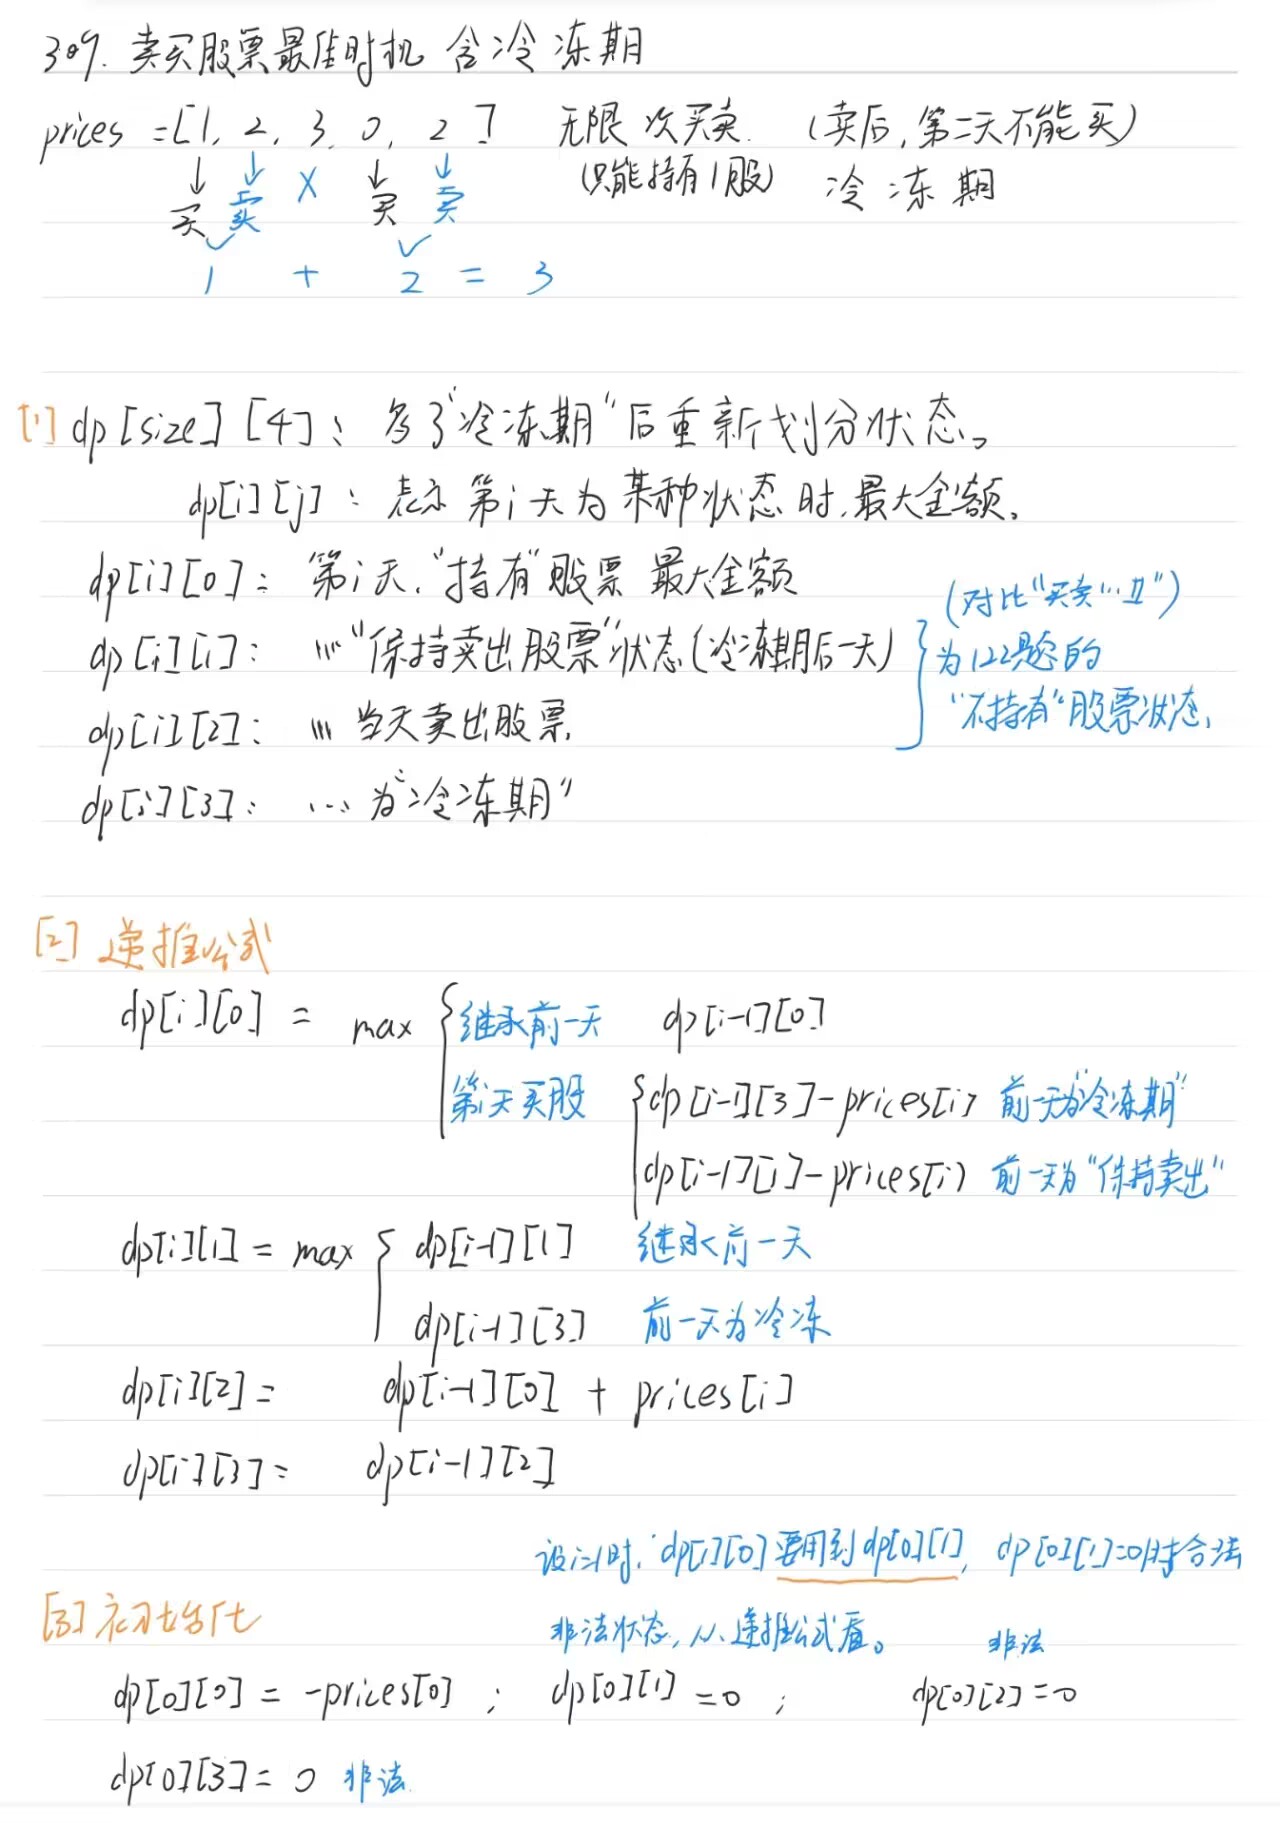 309. 卖买股票最佳时机 含冷冻期
prices = [1, 2, 3, 0, 2] 无限次买卖. (卖后,第二天不能买)
↓ ↓ X ↓ ↓ (只能持有1股) 冷冻期
买 卖 买 卖
1 + 2 = 3
[1] dp[size][4]: 多了“冷冻期”后重新划分状态。
dp[i][j]: 表示第i天为某种状态时,最大金额。
dp[i][0]: 第i天,“持有”股票 最大金额
(对比“买卖…II”)
dp[i][1]: ''' “保持卖出股票”状态(冷冻期后一天)
为122题的
dp[i][2]: ''' 当天卖出股票
“不持有”股票状态,
dp[i][3]: ... 为“冷冻期”
[2] 递推公式
dp[i][0] = max { 继承前一天 dp[i-1][0]
第i天买股 { dp[i-1][3]-prices[i] 前一天为“冷冻期”
dp[i-1][1]-prices[i] 前一天为“保持卖出”
dp[i][1] = max { dp[i-1][1] 继承前一天
dp[i-1][3] 前一天为冷冻
dp[i][2] = dp[i-1][0] + prices[i]
dp[i][3] = dp[i-1][2]
设i=1时, dp[1][0] 要用到dp[0][1], dp[0][1]=0时才合法
[3] 初始化 非法状态,从递推公式看。 非法
dp[0][0] = -prices[0] ; dp[0][1] = 0 ; dp[0][2] = 0
dp[0][3] = 0 非法.